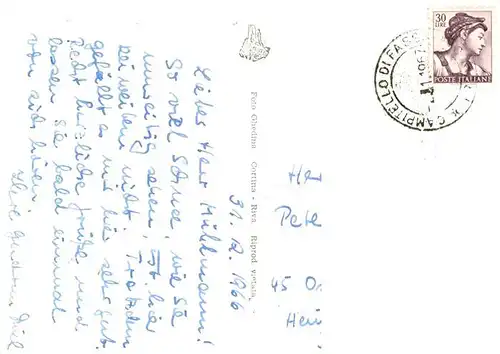 31.12.1966
Liebes Herr Mühlmann!
So viel Schnee, wie Sie
sehen, ist hier
bei weitem nicht. Trotzdem
gefällt es mir hier sehr gut.
Recht herzliche Grüße und
lassen Sie bald einmal
von sich hören.
Ihre
Foto Ghedina Cortina - Riva. Riprod. vietata.
30
LIRE
POSTE ITALIANE
CAMPITELLO DI FASS
Her
Pete
45 O
Hein